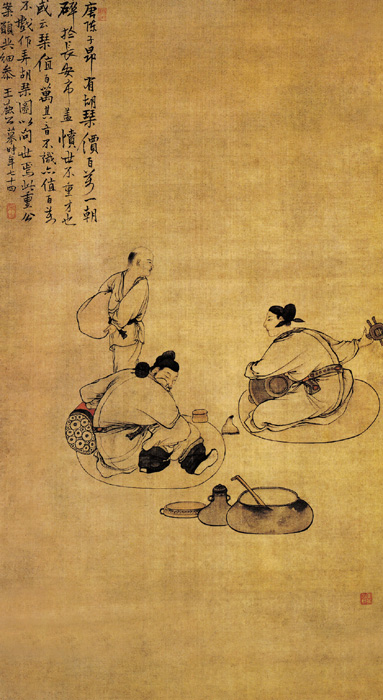 唐陳子昂有胡琴價百萬一朝
碎於長安市蓋憤世不重才也
或云琴值百萬其音不識亦值百萬
不戲作弄胡琴圖以問世焉此重公
案頭共細參 王 公摹時年七十四